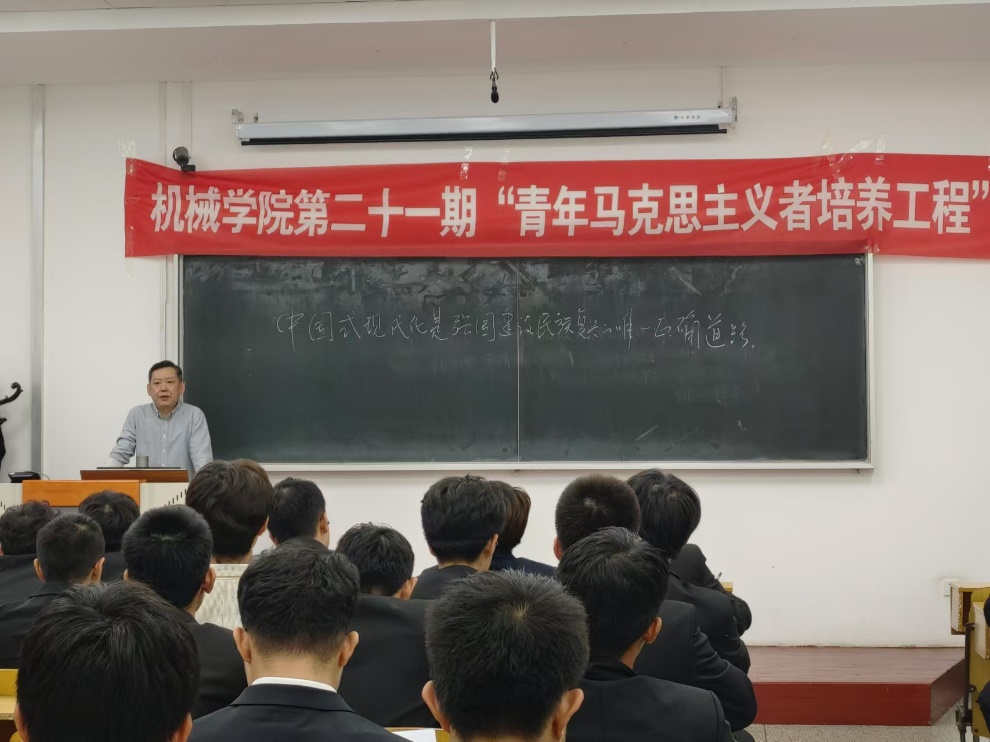 机械学院第二十一期“青年马克思主义者培养工程”
中国式现代化是强国建设民族复兴的唯一正确道路.